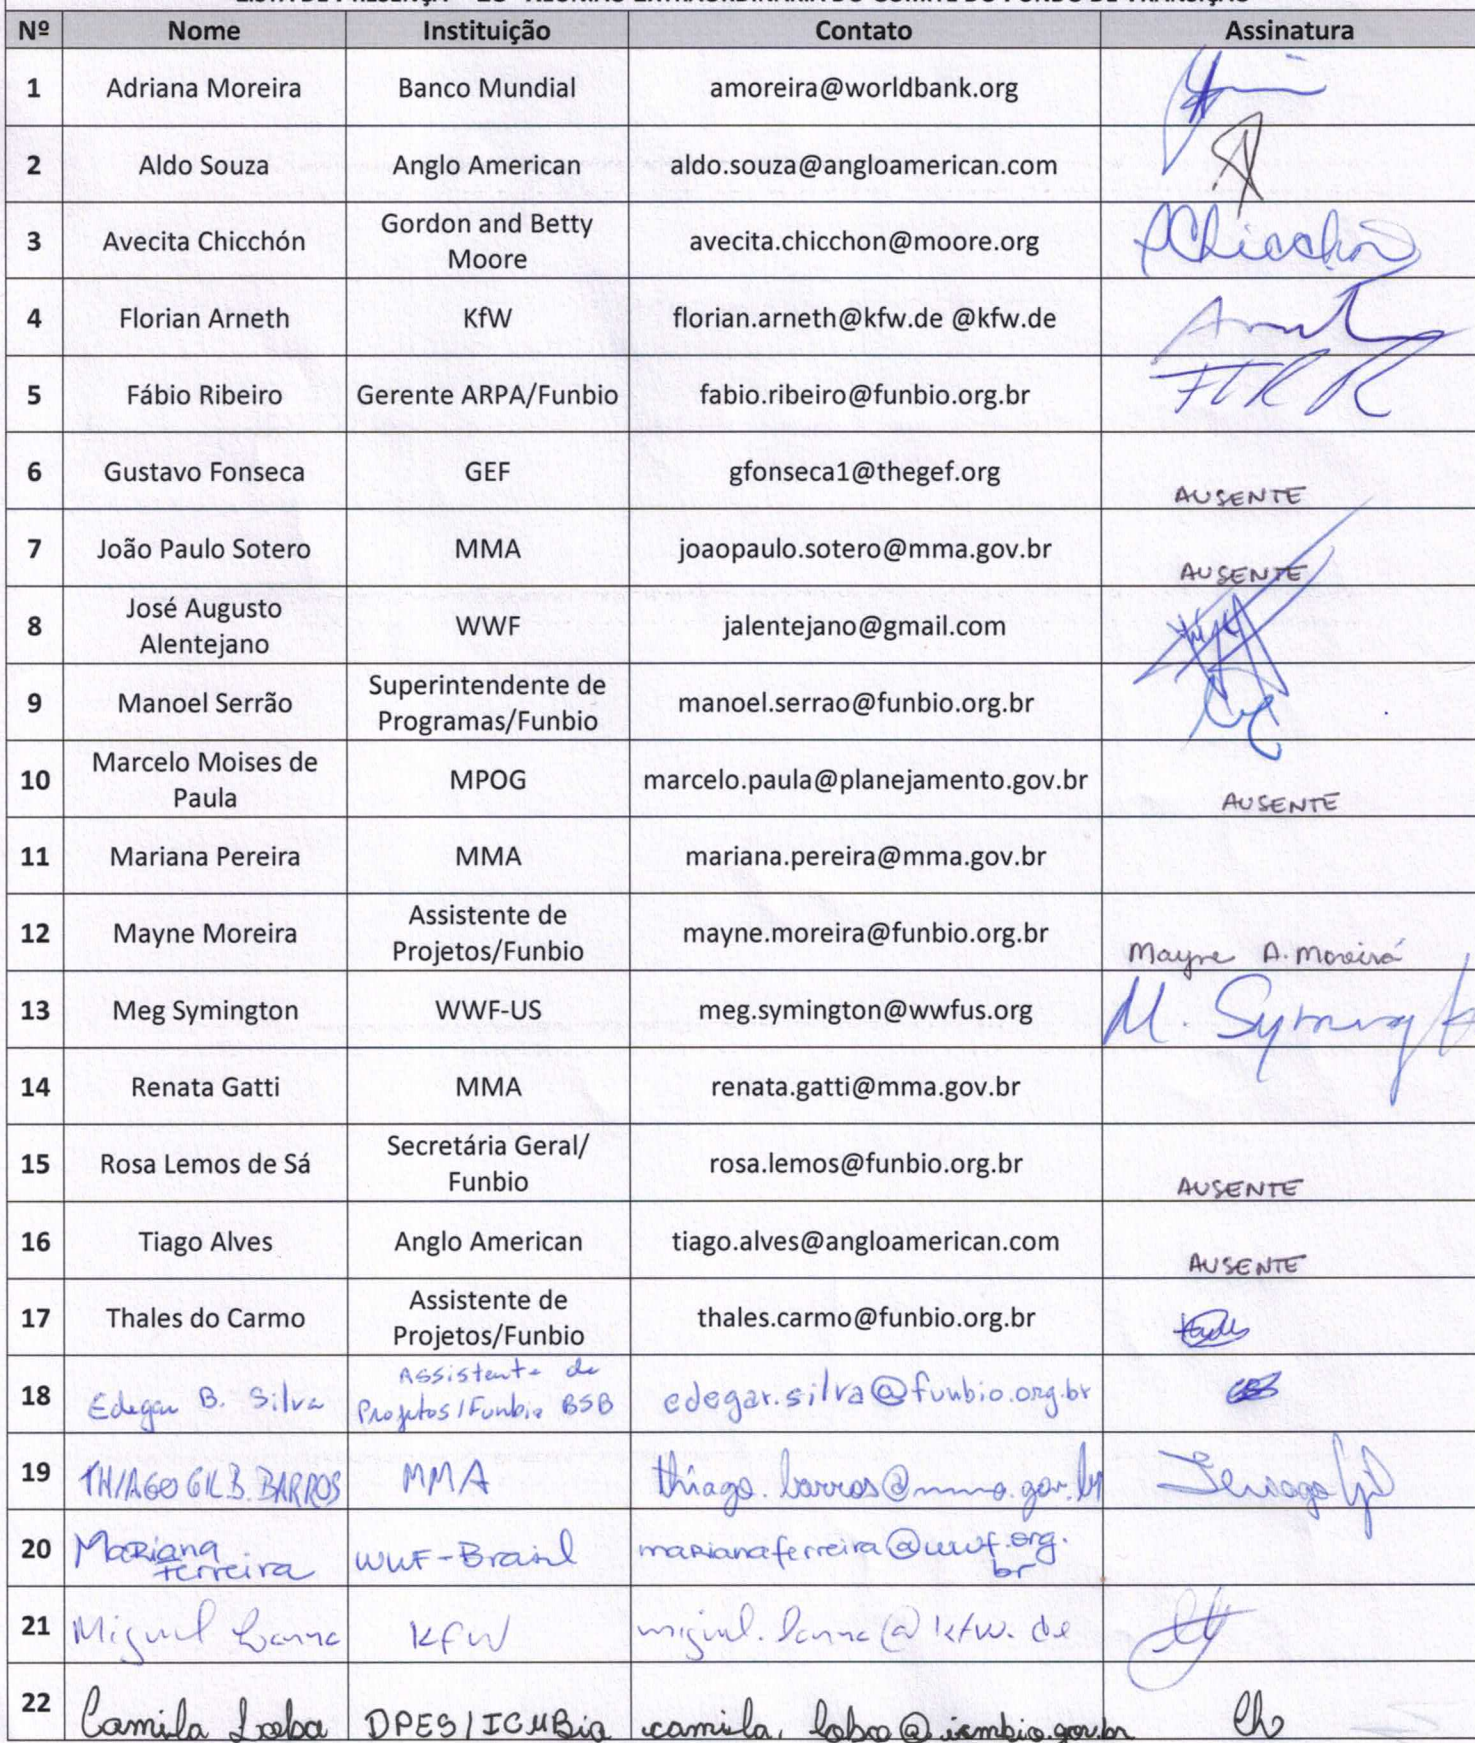 Nº Nome Instituição Contato Assinatura
1 Adriana Moreira Banco Mundial amoreira@worldbank.org
2 Aldo Souza Anglo American aldo.souza@angloamerican.com
3 Avecita Chicchón Gordon and Betty Moore avecita.chicchon@moore.org Chicchón
4 Florian Arneth KfW florian.arneth@kfw.de @kfw.de
5 Fábio Ribeiro Gerente ARPA/Funbio fabio.ribeiro@funbio.org.br
6 Gustavo Fonseca GEF gfonseca1@thegef.org AUSENTE
7 João Paulo Sotero MMA joaopaulo.sotero@mma.gov.br AUSENTE
8 José Augusto Alentejano WWF jalentejano@gmail.com
9 Manoel Serrão Superintendente de Programas/Funbio manoel.serrao@funbio.org.br
10 Marcelo Moises de Paula MPOG marcelo.paula@planejamento.gov.br AUSENTE
11 Mariana Pereira MMA mariana.pereira@mma.gov.br
12 Mayne Moreira Assistente de Projetos/Funbio mayne.moreira@funbio.org.br Mayne A. Moreira
13 Meg Symington WWF-US meg.symington@wwfus.org M. Symington
14 Renata Gatti MMA renata.gatti@mma.gov.br
15 Rosa Lemos de Sá Secretária Geral/ Funbio rosa.lemos@funbio.org.br AUSENTE
16 Tiago Alves Anglo American tiago.alves@angloamerican.com AUSENTE
17 Thales do Carmo Assistente de Projetos/Funbio thales.carmo@funbio.org.br
18 Edegar B. Silva Assistente de Projetos/Funbio BSB edegar.silva@funbio.org.br
19 THIAGO GIL B. BARROS MMA thiago.barros@mma.gov.br Thiago Gil
20 Mariana Ferreira WWF-Brasil marianaferreira@wwf.org.br
21 Miguel KfW
22 Camila Lobo DPES/ICMBio camila.lobo@icmbio.gov.br